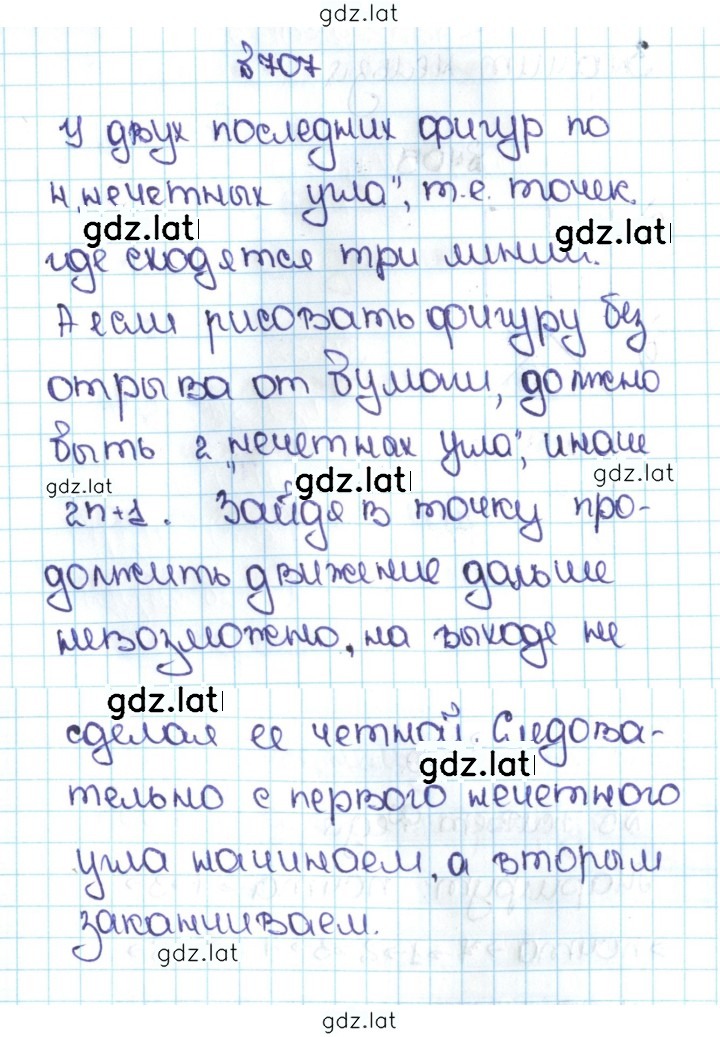 gdz.lat
в 707
У двух последних фигур по
4 „нечетных угла“, т.е. точек,
gdz.lat gdz.lat
где сходятся три линии.
А если рисовать фигуру без
отрыва от бумаги, должно
быть 2 „нечетных угла“, иначе
gdz.lat gdz.lat gdz.lat
2n+1. Зайдя в точку про-
должить движение дальше
невозможно, на выходе не
gdz.lat
сделая ее четной. Следова-
gdz.lat
тельно с первого нечетного
угла начинаем, а вторым
заканчиваем.
gdz.lat
gdz.lat